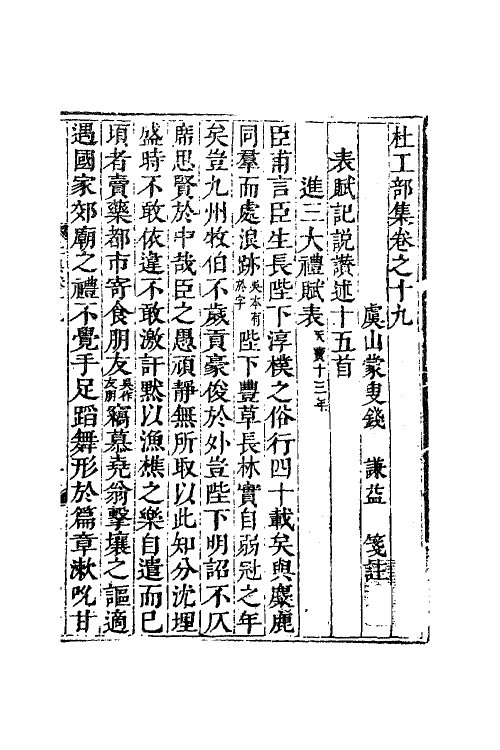 杜工部集卷之十九
虞山蒙叟錢謙益箋註
表賦記說讚述十五首
進三大禮賦表天寶十三年
臣甫言臣生長陛下淳樸之俗行四十載矣與麋鹿
同羣而處浪跡吳本有於字陛下豐草長林實自弱冠之年
矣豈九州牧伯不歲貢豪俊於外豈陛下明詔不仄
席思賢於中哉臣之愚頑靜無所取以此知分沈埋
盛時不敢依違不敢激訐默以漁樵之樂自遣而已
頃者賣藥都市寄食朋友吳作友朋竊慕堯翁擊壤之謳適
遇國家郊廟之禮不覺手足蹈舞形於篇章漱吮甘